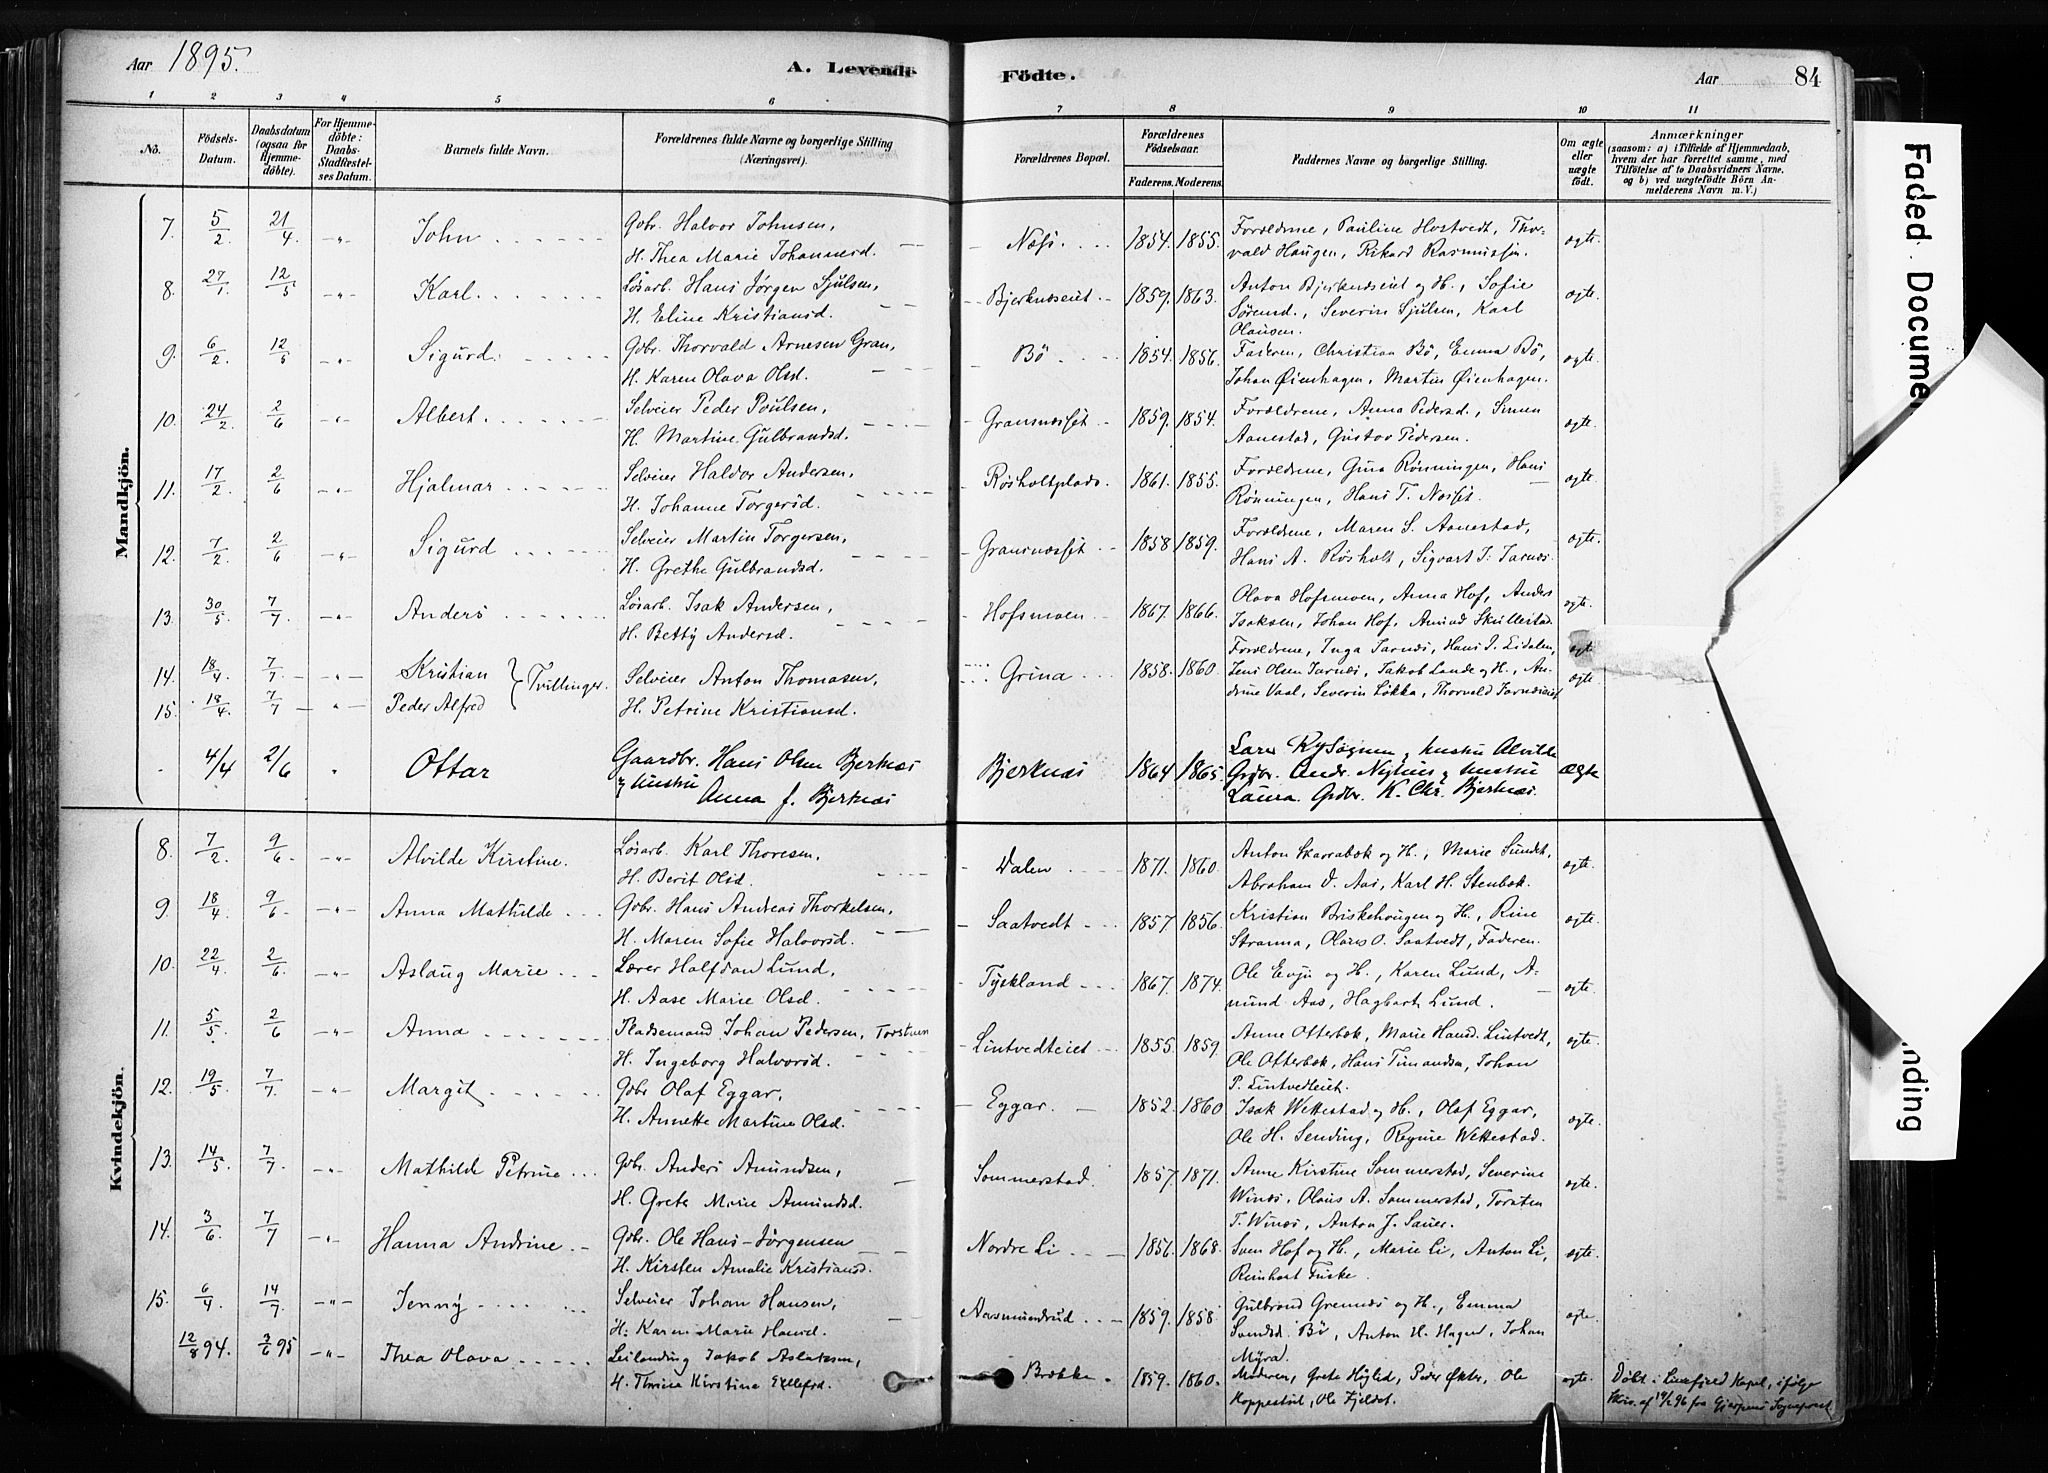 Aar 1895.
A. Levende Födte.
Aar 84
1 2 3 4 5 6 7 8 9 10 11
No.
Födsels-Datum.
Daabsdatum (ogsaa for Hjemme-döbte).
For Hjemme-döbte: Daabs-Stadfæstel-ses Datum.
Barnets fulde Navn.
Forældrenes fulde Navne og borgerlige Stilling (Næringsvei).
Forældrenes Bopæl.
Forældrenes Födselsaar.
Faderens. Moderens.
Faddernes Navne og borgerlige Stilling.
Om ægte eller uægte født.
Anmærkninger
(saasom: a) i Tilfælde af Hjemmedaab,
hvem der har forrettet samme, med
Tilföielse af to Daabsvidners Navne,
og b) ved uægtefödte Börn An-
melderens Navn m. V.)
Mandkjön.
7. 5/2 21/4 -"- John Gbr. Halvor Johnsen, Næss. 1854. 1855. Forældrene, Pauline Hostvedt, Thor- ægte.
H. Thea Marie Johannesd. vald Haugen, Rikard Rasmussen.
8. 27/1 12/5 -"- Karl Løsarb. Hans Jørgen Sjulsen, Bjerknæseiet 1859. 1863. Anton Bjerknæseiet og H., Sofie ægte.
H. Eline Kristiansd. Sørensd., Severin Sjulsen, Karl
Olausen.
9. 6/2 12/5 -"- Sigurd Gbr. Thorvald Arnesen Gran, Bö 1854. 1856. Faderen, Christian Bö, Emma Bö, ægte.
H. Karen Olava Olsd. Johan Øienhagen, Martin Øienhagen.
10. 24/2 2/6 -"- Albert. Selveier Peder Poulsen, Gransnæsset 1859. 1854. Forældrene, Anna Pedersd., Simen ægte.
H. Martine Gulbrandsd. Aanestad, Gustav Pedersen.
11. 17/2 2/6 -"- Hjalmar Selveier Haldor Andersen, Røsholtplads. 1861. 1855. Forældrene, Gina Rönningen, Hans ægte.
H. Johanne Torgersd. Rönningen, Hans T. Næsset.
12. 7/2 2/6 -"- Sigurd Selveier Martin Torgersen, Gransnæsset 1858 1859. Forældrene, Maren S. Aanestad, ægte.
H. Grethe Gulbrandsd. Hans A. Røsholt, Sigvart I. Jarnæs.
13. 30/5 7/7 -"- Anders Løsarb. Isak Andersen, Hofsmoen 1867. 1866. Olava Hofsmoen, Anna Hof, Anders ægte.
H. Betty Andersd. Isaksen, Johan Hof, Amund Skullestad
14. 18/4 7/7 -"- Kristian } Tvillinger. Selveier Anton Thomasen, Grina 1858. 1860. Forældrene, Inga Jarnæs, Hans J. Eidalen, ægte
Jens Olsen Jarnæs, Jakob Lande og H., An-
15. 18/4 7/7 -"- Peder Alfred H. Petrine Kristiansd. drine Vaal, Severin Løkka, Thorvald Jarnæseiet ægte.
4/4 2/6 " Ottar Gaardbr. Hans Olsen Bjerknæs Bjerknæs 1864 1865. Lars Hustru Alvilde
Hustru Gbr. Andr. Hustru ægte
Anna J. Bjerknæs Laura. Gdbr. K. Chr. Bjerknæs.
Kvindekjön.
8. 7/2 9/6 -"- Alvilde Kirstine. Løsarb. Karl Thoresen, Dalen 1871. 1860. Anton Skarrabæk og H., Marie Sundet, ægte.
H. Berit Olsd. Abraham D. Aas, Karl H. Stenbæk.
9. 18/4 9/6 -"- Anna Mathilde Gbr. Hans Andreas Thorkelsen, Saatvedt 1857 1856. Kristian Briskehougen og H., Rine ægte.
H. Maren Sofie Halvorsd. Stranna, Olaus O. Saatvedt, Faderen.
10. 22/4 2/6 -"- Aslaug Marie Lærer Halfdan Lund, Tyskland 1867. 1874. Ole Evju og H., Karen Lund, A- ægte.
H. Aase Marie Olsd. mund Aas, Hagbart Lund.
11. 5/5 2/6 -"- Anna Pladsemand Johan Pedersen, Torstuen Lintvedteiet 1855. 1859. Anne Otterbæk, Marie Hansd. Lintvedt, ægte.
H. Ingeborg Halvorsd. Ole Otterbæk, Hans Timandsen, Johan
P. Lintvedteiet.
12. 19/5 7/7 -"- Margit Gbr Olaf Eggar, Eggar. 1852. 1860 Isak Wettestad og H., Olaf Eggar, ægte.
H. Annette Martine Olsd. Ole H. Sending, Regine Wettestad.
13. 14/5 7/7 -"- Mathilde Petrine Gbr. Anders Amundsen, Sommerstad. 1857 1871. Anne Kirstine Sommerstad, Severine ægte.
H. Grete Marie Amundsd. Winæs, Olaus A. Sommerstad, Torsten
T. Winæs, Anton J. Sauer.
14. 3/6 7/7 -"- Hanna Andrine Gbr. Ole Hans-Jørgensen Nordre Li 1856. 1868. Sven Hof og H., Marie Li, Anton Li, ægte.
H. Kirsten Amalie Kristiansd. Reinhart Fiske.
15. 6/4 14/7 -"- Jenny Selveier Johan Hansen, Aasmundrud 1859. 1858. Gulbrand Grennæs og H., Emma ægte.
H. Karen Marie Hansd. Svendsd. Bö, Anton H. Hagen, Johan
Myra.
12/8 94. 3/6 95 -"- Thea Olava Leilænding Jakob Aslaksen, Brække 1859. 1860. Moderen, Grete Höglid, Peder Økter, Ole ægte. Döbt i Luxefjeld Kapel, ifølge
H. Kirstine Ellefsd. Koppestul, Ole Fjeldet. Skriv. af 14/2 96 fra Gjerpens Sogneprest.
Faded Docume
nding